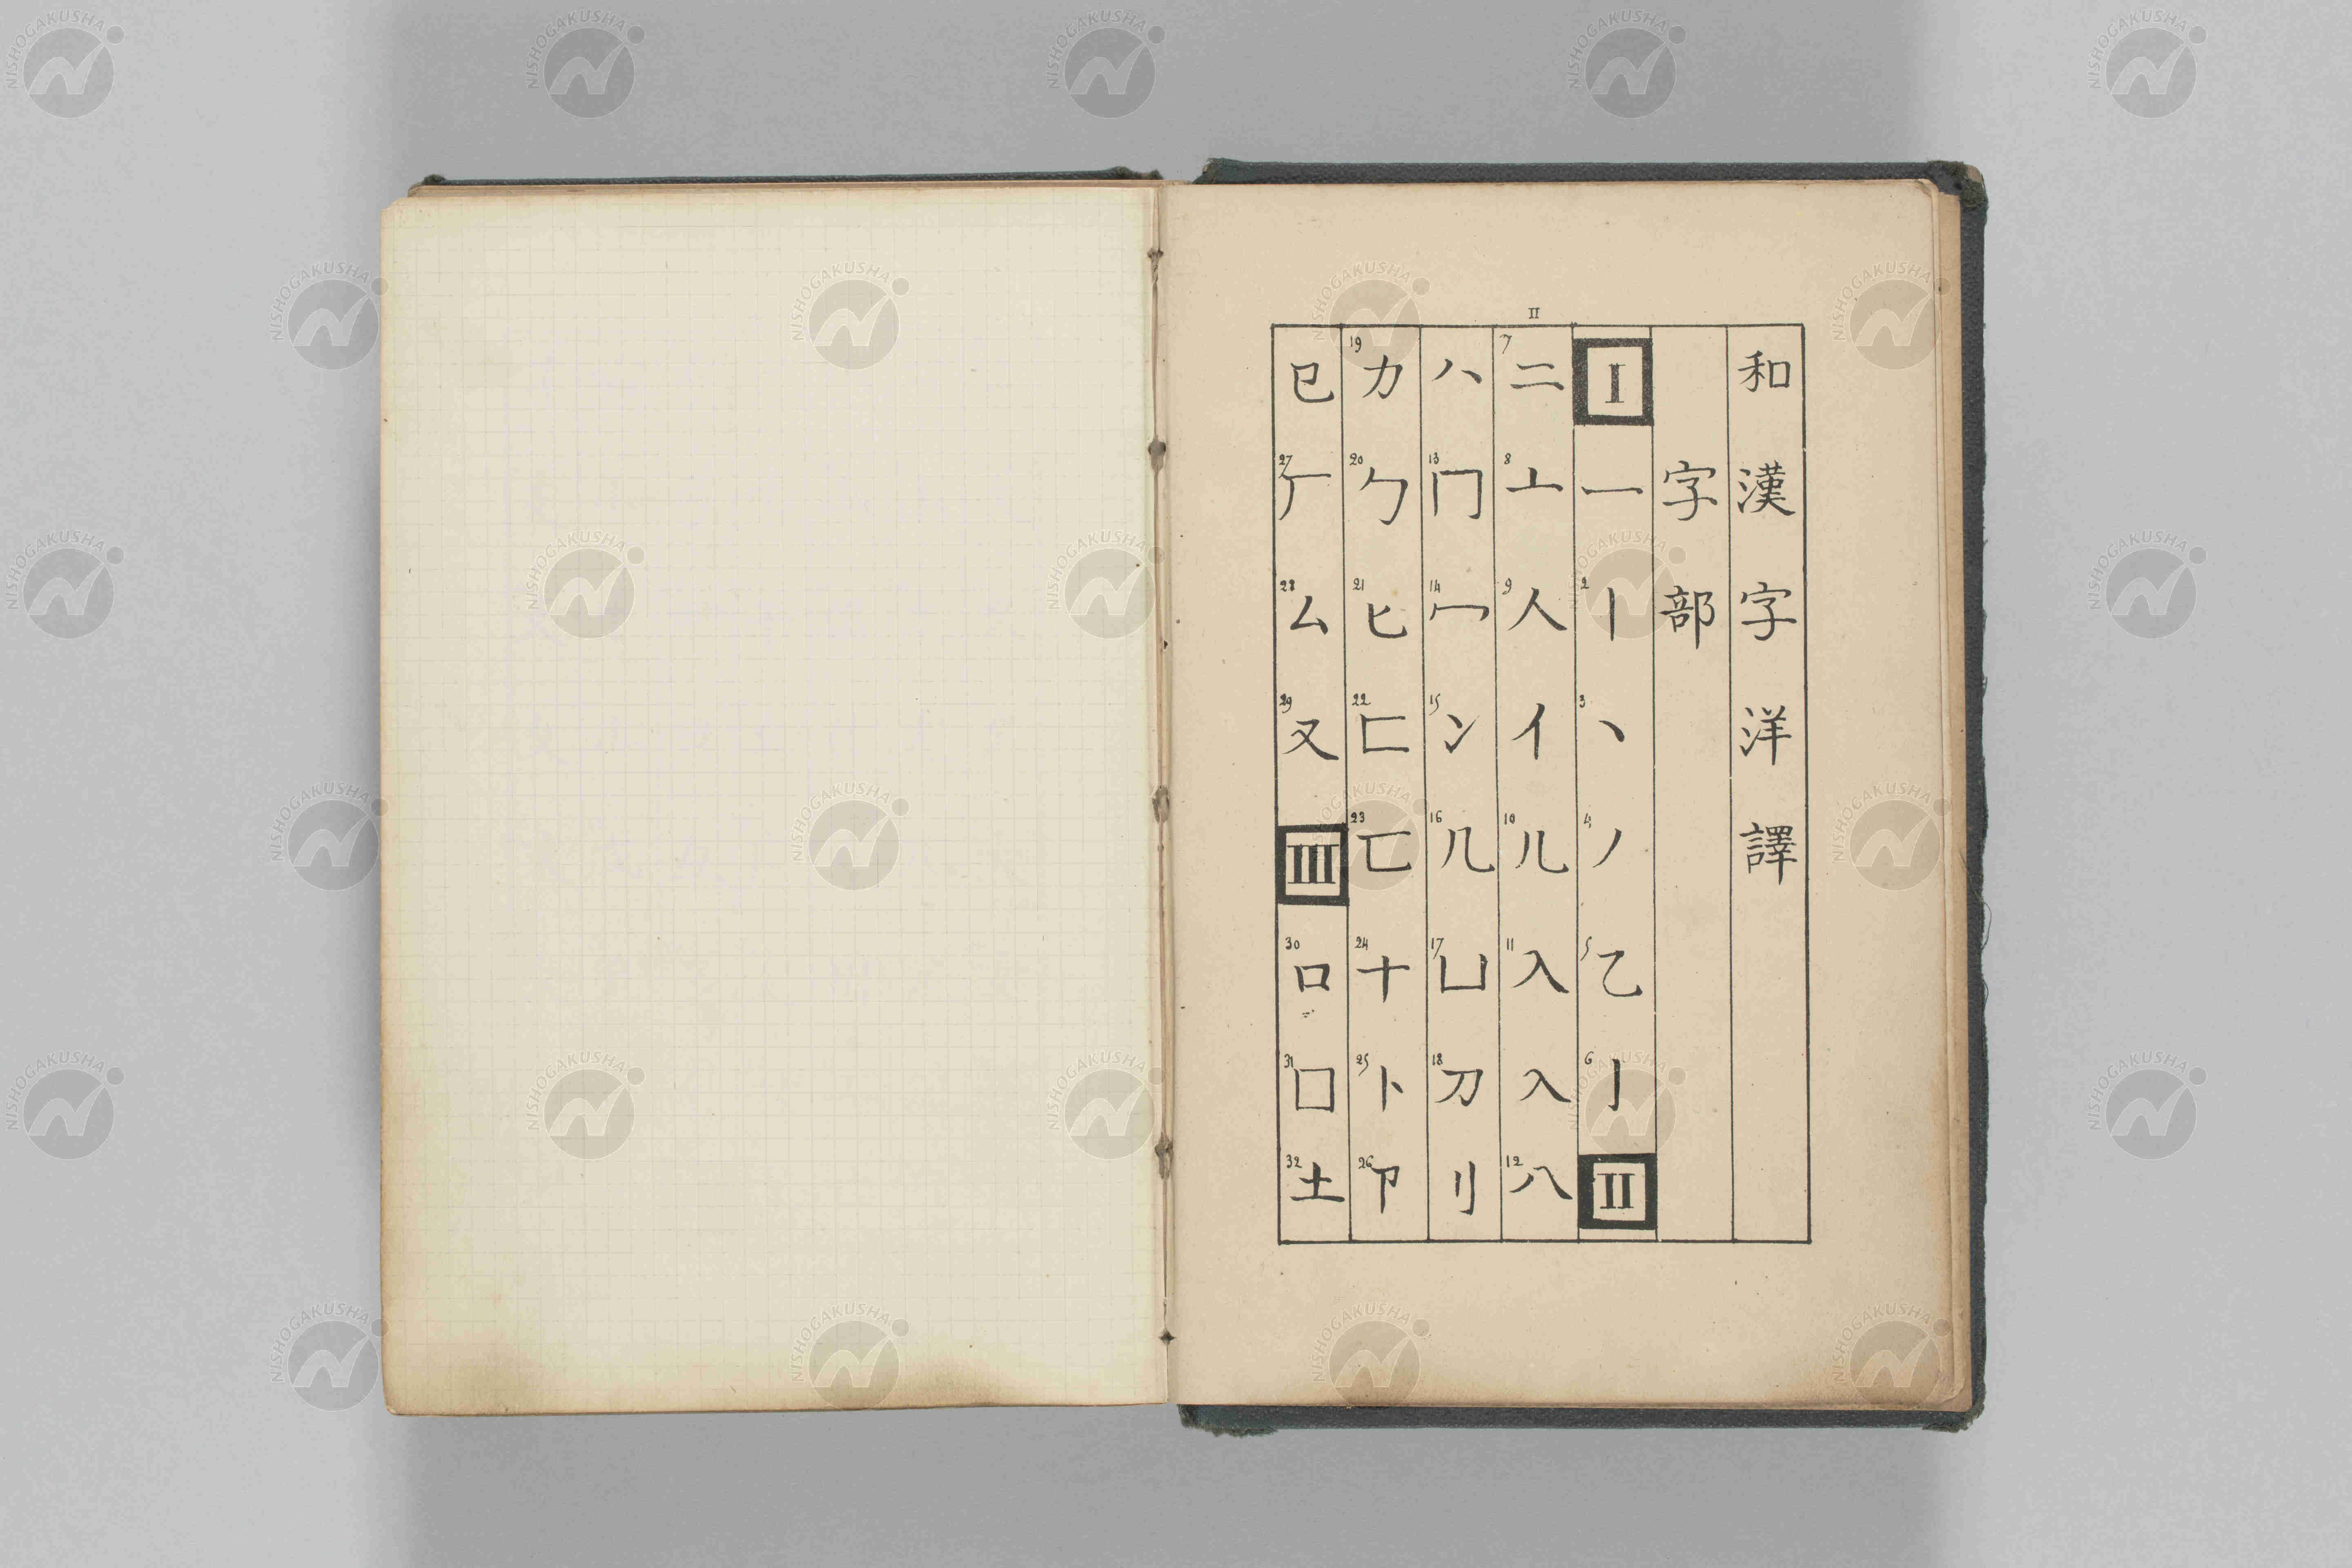 II
和漢字洋譯
字部
I 一 2 丨 3 丶 4 丿 5 乙 6 亅 II
7 二 8 亠 9 人 亻 10 儿 11 入 入 12 八
ハ 13 冂 14 冖 15 冫 16 几 17 凵 18 刀 刂
19 力 20 勹 21 匕 22 匚 23 匸 24 十 25 卜 26 卩
㔾 27 厂 28 厶 29 又 III 30 口 31 囗 32 土
NISHOGAKUSHA